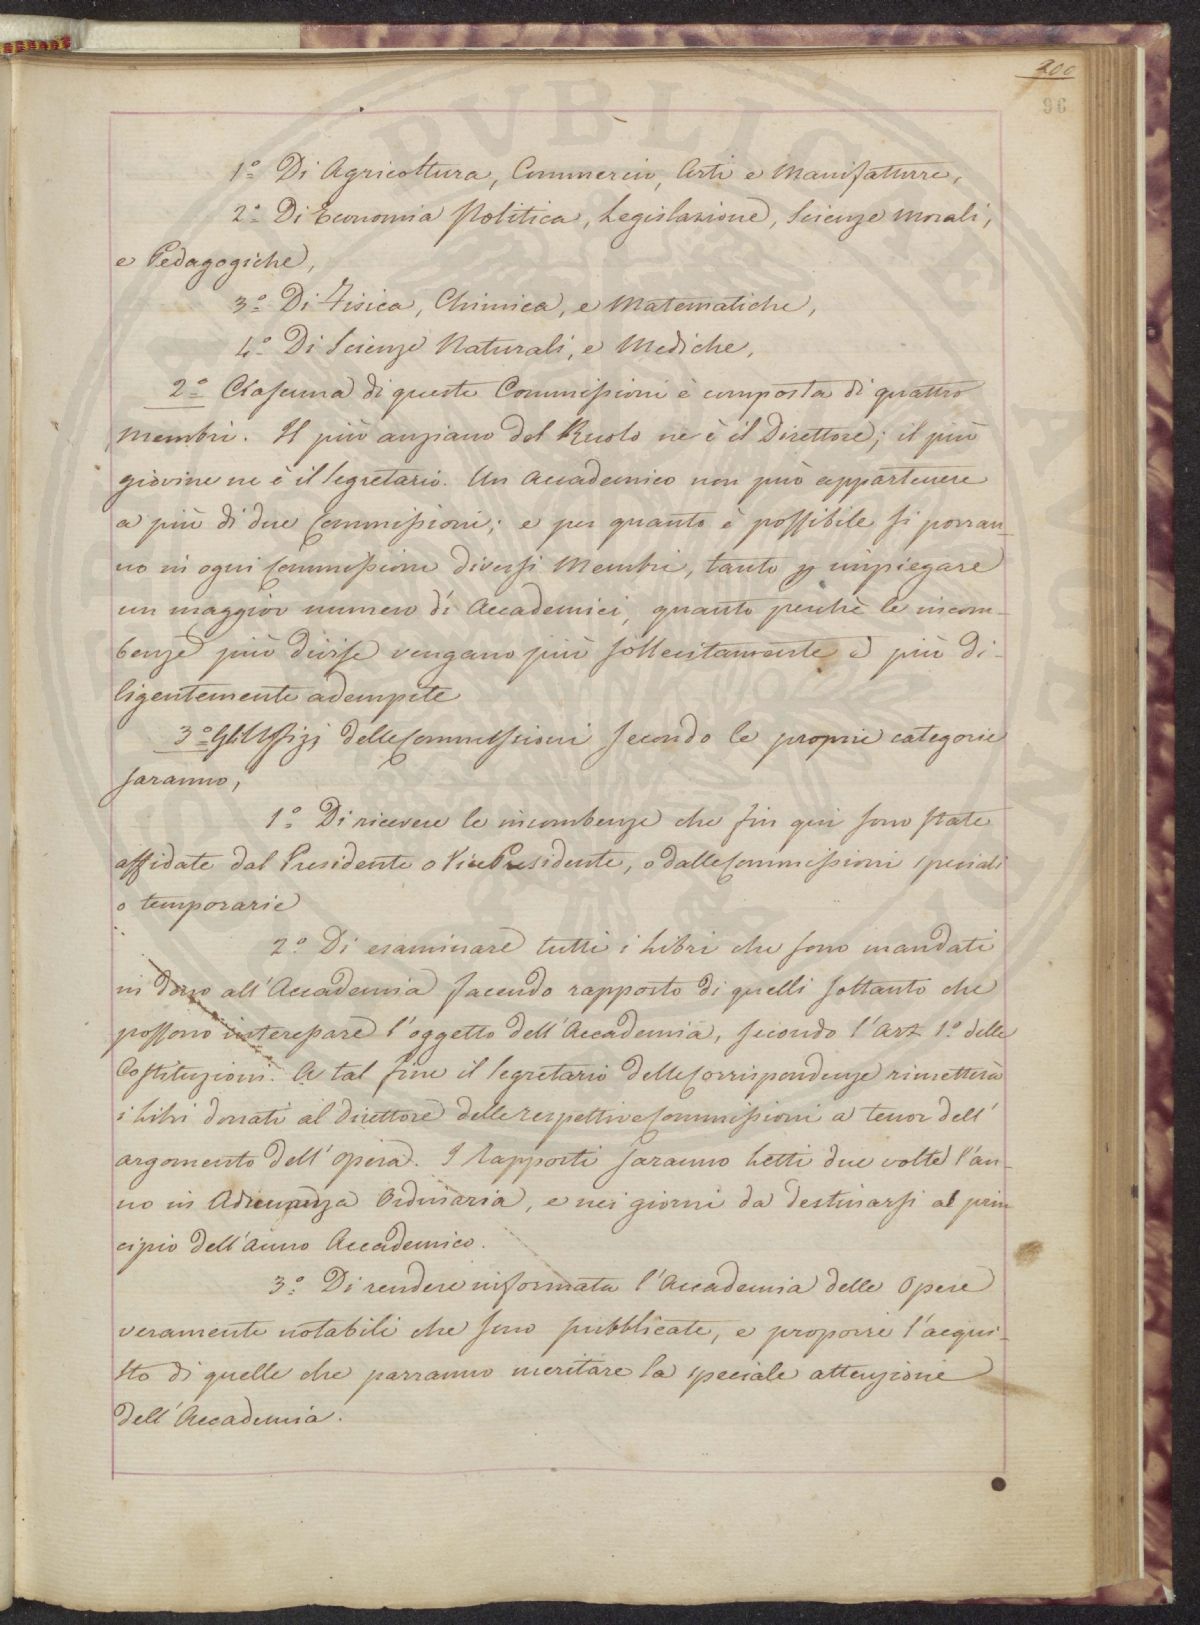 200
96
1.º Di Agricoltura, Commercio, Arti e Manifatture,
2.º Di Economia Politica, Legislazione, Scienze Morali,
e Pedagogiche,
3.º Di Fisica, Chimica, e Matematiche,
4.º Di Scienze Naturali, e Mediche,
2.º Ciascuna di queste Commissioni è composta di quattro
Membri. Il più anziano del Ruolo ne è il Direttore; il più
giovine ne è il Segretario. Un Accademico non può appartenere
a più di due Commissioni; e per quanto è possibile si porran-
no in ogni Commissione diversi Membri, tanto p impiegare
un maggior numero di Accademici, quanto perchè le incom-
benze più divise vengano più sollecitamente e più di-
ligentemente adempite
3.º Gli Ufizj delle Commissioni secondo le proprie categorie
saranno,
1.º Di ricevere le incombenze che fin qui sono state
affidate dal Presidente o Vice Presidente, o dalle Commissioni speciali
o temporarie
2.º Di esaminare tutti i Libri che sono mandati
in dono all'Accademia facendo rapporto di quelli soltanto che
possono interessare l'oggetto dell'Accademia, secondo l'Art. 1.º delle
Costituzioni. A tal fine il Segretario delle Corrispondenze rimetterà
i Libri donati al Direttore delle respettive Commissioni a tenor dell'
argomento dell'opera. I Rapporti saranno Letti due volte l'an-
no in Adunanza Ordinaria, e nei giorni da destinarsi al prin
cipio dell'Anno Accademico.
3.º Di rendere informata l'Accademia delle Opere
veramente notabili che sono pubblicate, e proporre l'acqui-
sto di quelle che parranno meritare la speciale attenzione
dell'Accademia.